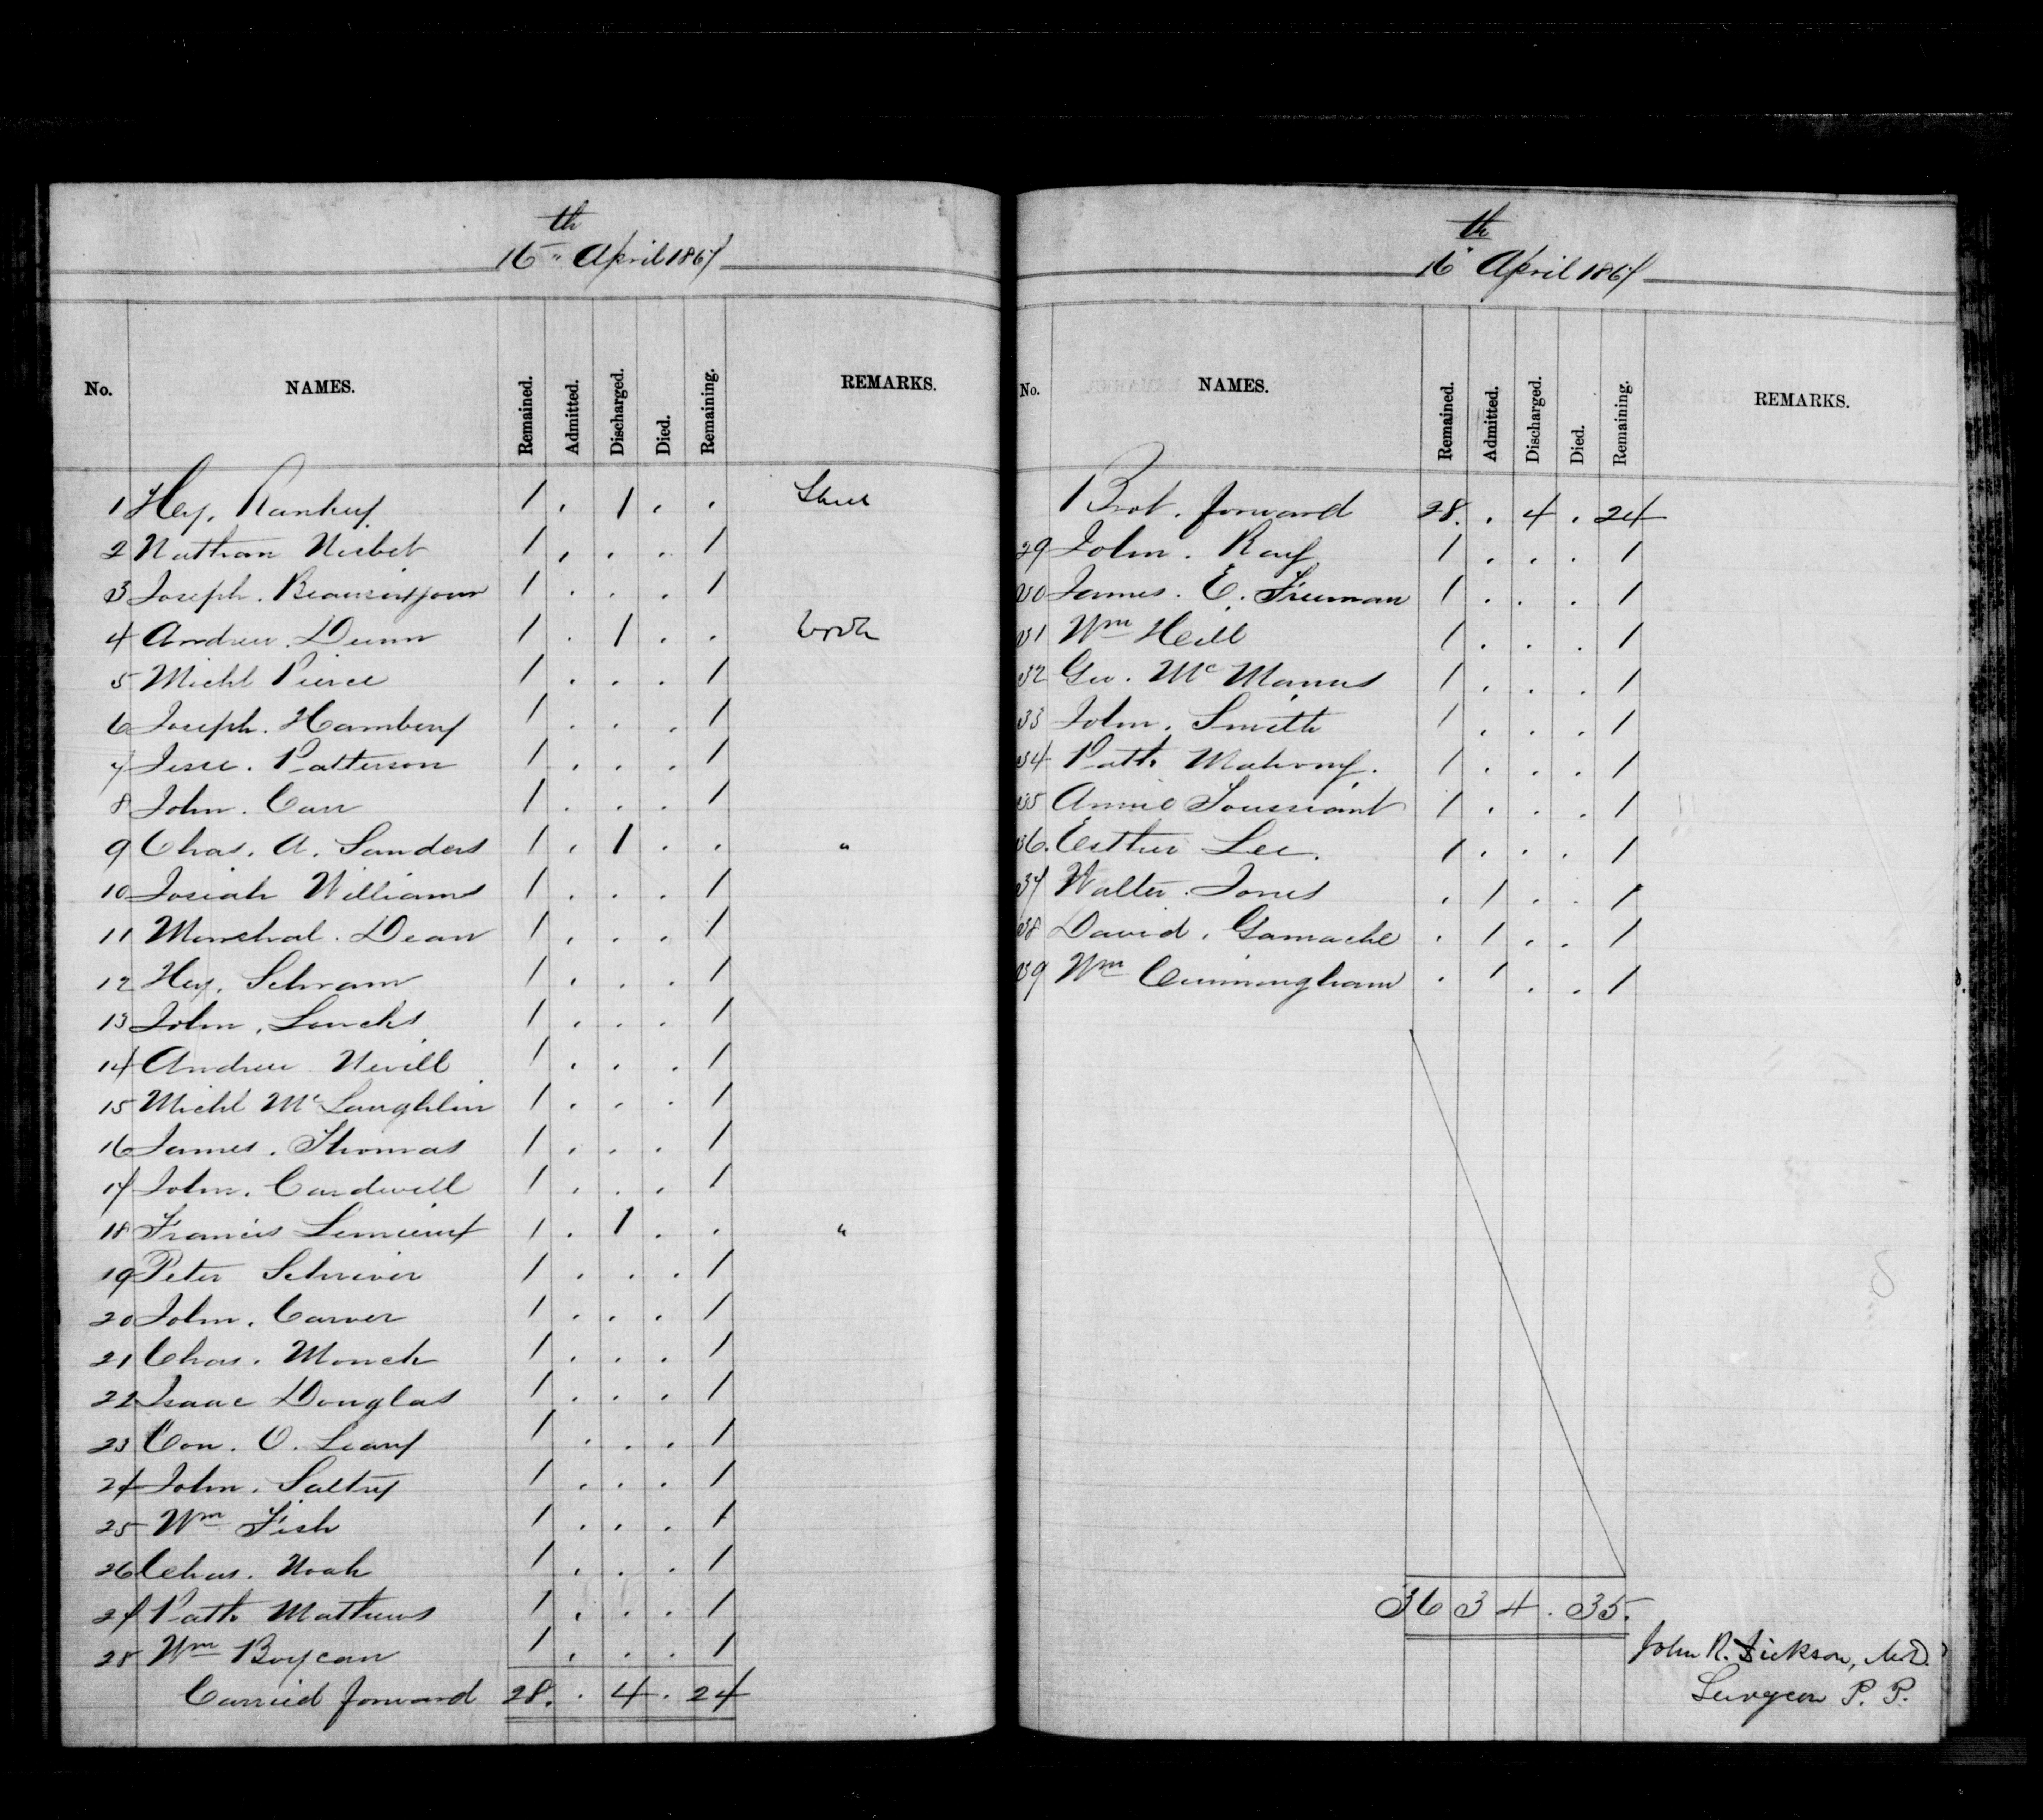 16th April 1867
No. NAMES. Remained. Admitted. Discharged. Died. Remaining. REMARKS.
1 Hey. 1 . 1 . .
2 Nathan Nisbet 1 . . . 1
3 Joseph. 1 . . . 1
4 Andrew. Dunn 1 . 1 . . Work
5 Michl Pierce 1 . . . 1
6 Joseph. Hambury 1 . . . 1
7 Jesse. Patterson 1 . . . 1
8 John. Carr 1 . . . 1
9 Chas. A. Sanders 1 . 1 . . "
10 Josiah Williams 1 . . . 1
11 Marshal. Dean 1 . . . 1
12 Hey. Schram 1 . . . 1
13 John. Loucks 1 . . . 1
14 Andrew Nevill 1 . . . 1
15 Michl McLaughlin 1 . . . 1
16 James. Thomas 1 . . . 1
17 John. Cardwell 1 . . . 1
18 Francis Lemieux 1 . 1 . . "
19 Peter Schriver 1 . . . 1
20 John. Carver 1 . . . 1
21 Chas. Monck 1 . . . 1
22 Isaac Douglas 1 . . . 1
23 Con. O. Leary 1 . . . 1
24 John. Saltry 1 . . . 1
25 Wm Fish 1 . . . 1
26 Chas. Noah 1 . . . 1
27 Patk Mathews 1 . . . 1
28 Wm Boycan 1 . . . 1
Carried forward 28. . 4 . 24
16th April 1867
No. NAMES. Remained. Admitted. Discharged. Died. Remaining. REMARKS.
Brot. forward 28. . 4 . 24
29 John. Ray 1 . . . 1
30 James. E. Freeman 1 . . . 1
31 Wm Heill 1 . . . 1
32 Geo. McManus 1 . . . 1
33 John. Smith 1 . . . 1
34 Patk Mahony. 1 . . . 1
35 Annie Toussiant 1 . . . 1
36. Esther Lee. 1 . . . 1
37 Walter. Jones . 1 . . 1
38 David. Gamache . 1 . . 1
39 Wm Cunningham . 1 . . 1
36 3 4 . 35.
John R. Dickson, M.D.
Surgeon P. P.